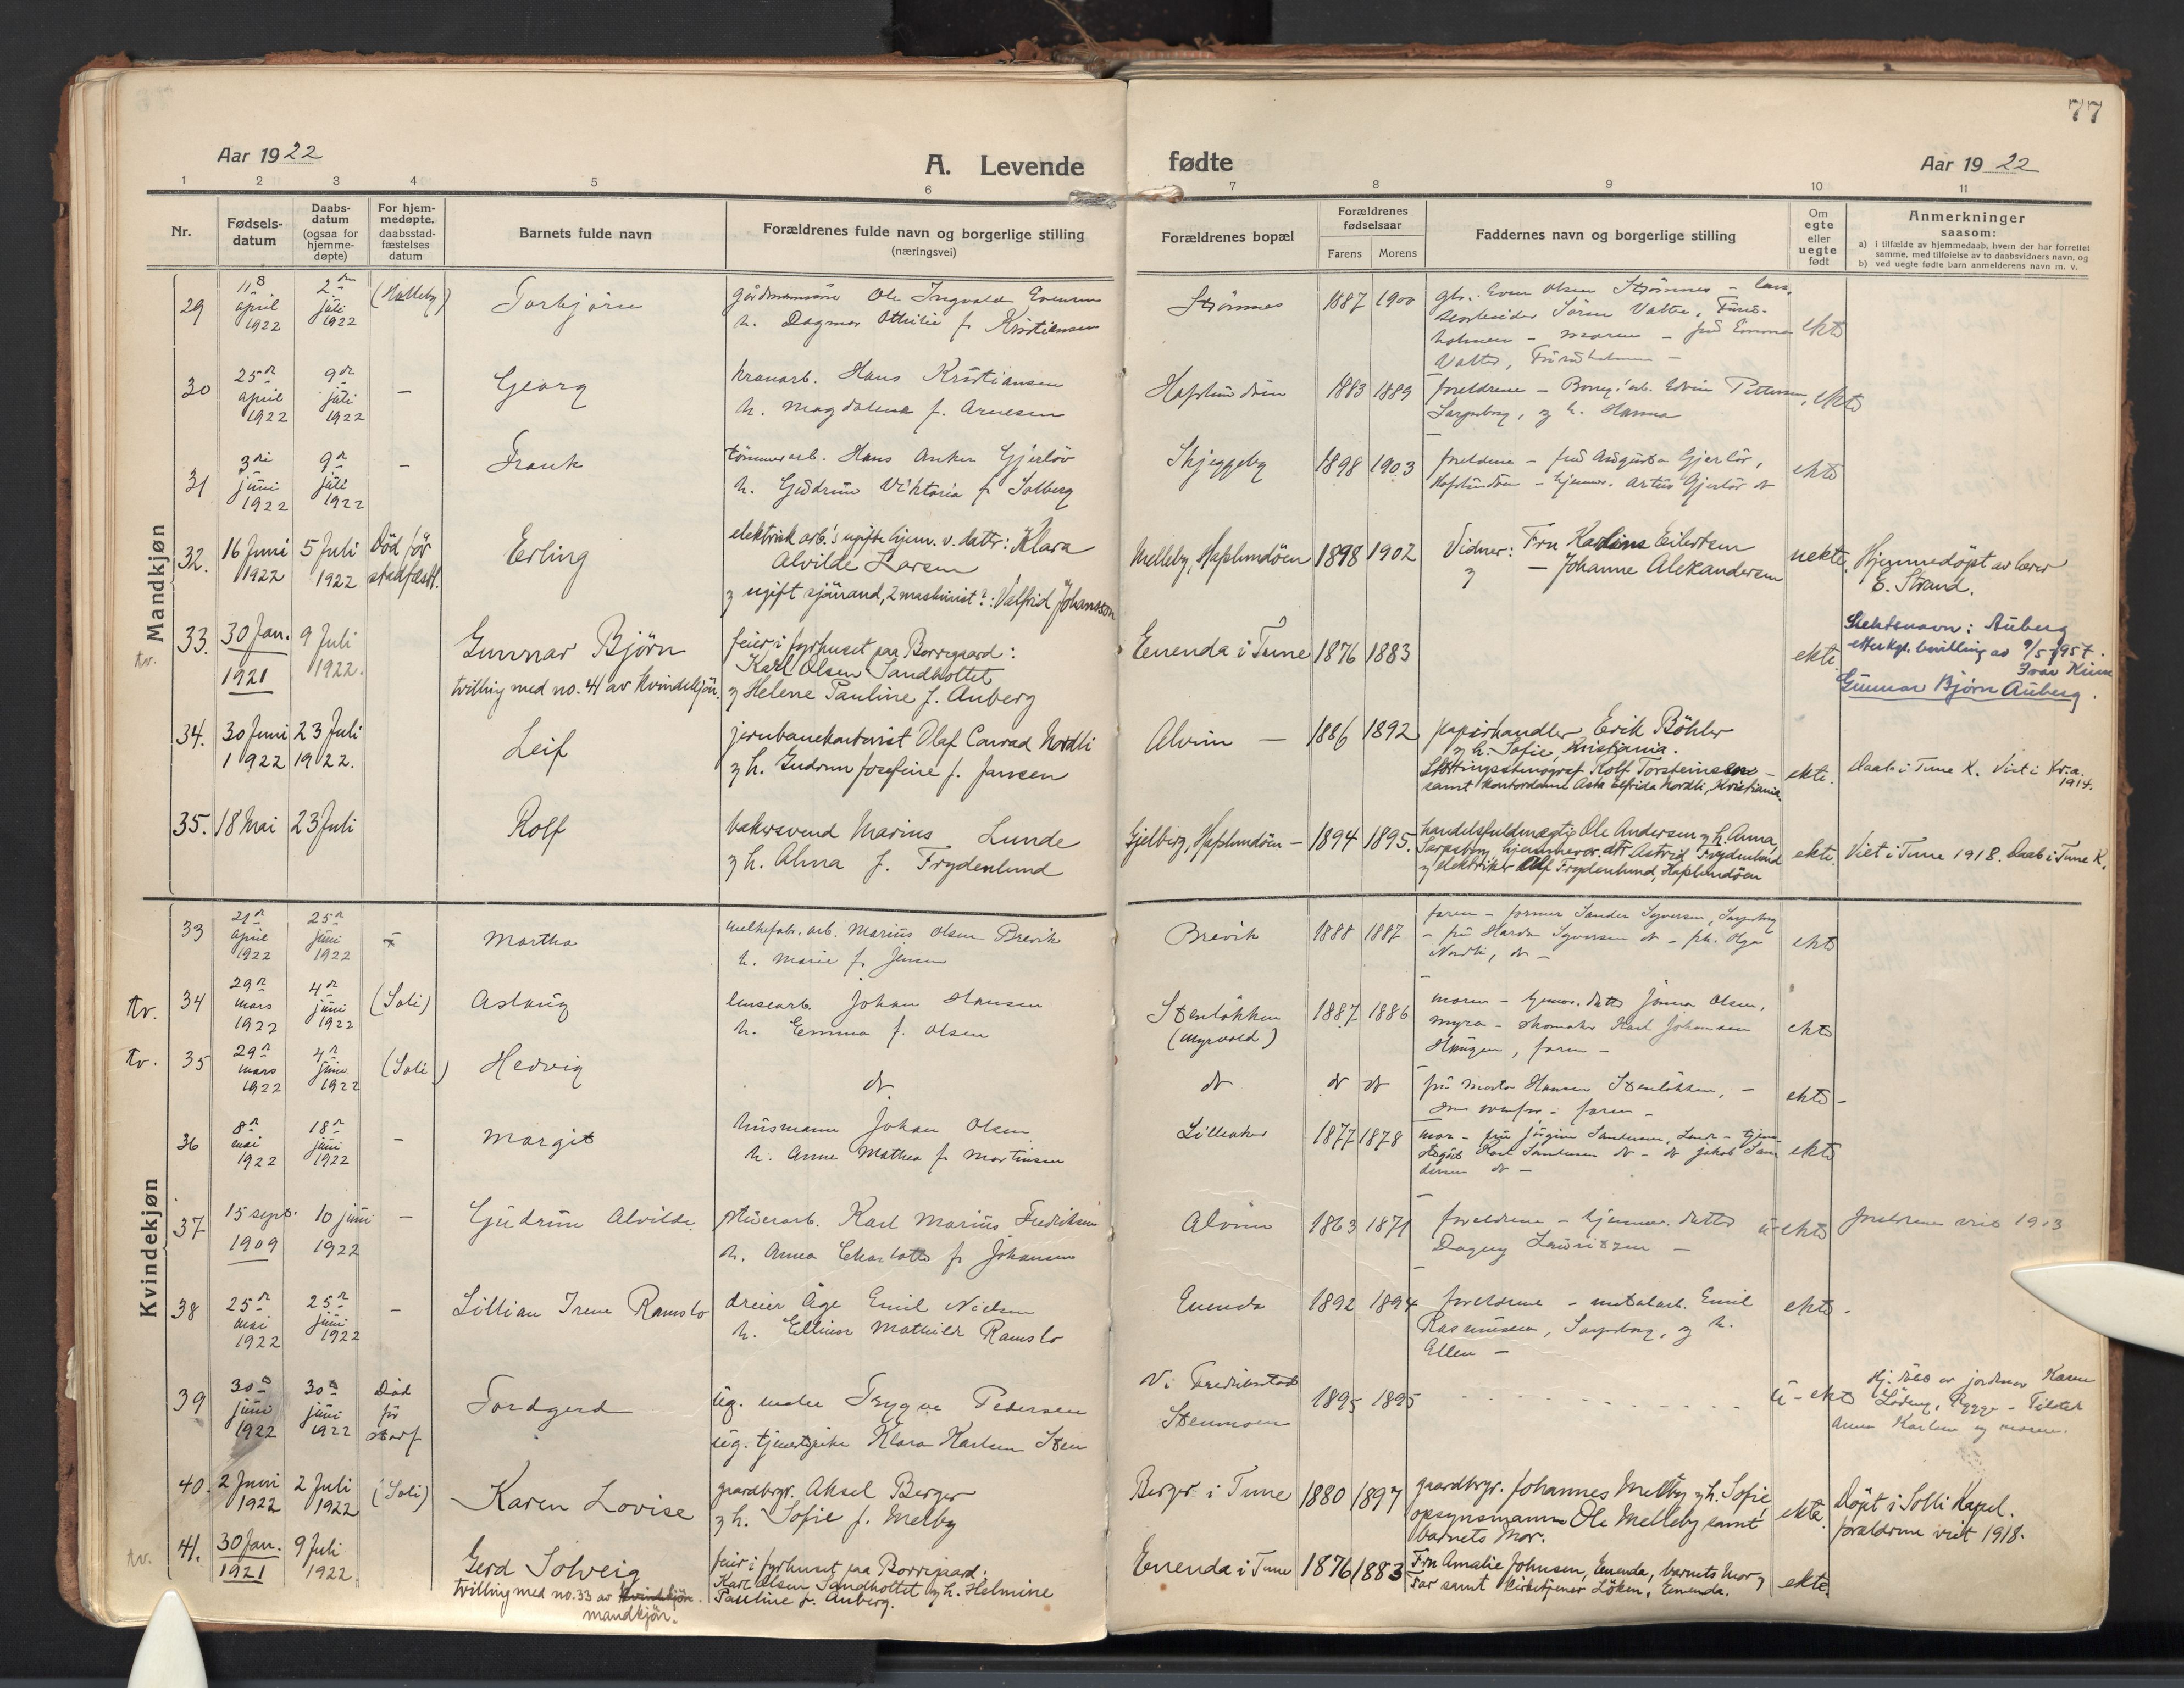 77
Aar 1922
A. Levende
fødte
Aar 1922
1 2 3 4 5 6 7 8 9 10 11
Nr.
Fødsels-
datum
Daabs-
datum
(ogsaa for
hjemme-
døpte)
For hjem-
medøpte,
daabsstad-
fæstelses
datum
Barnets fulde navn
Forældrenes fulde navn og borgerlige stilling
(næringsvei)
Forældrenes bopæl
Forældrenes
fødselsaar
Farens Morens
Faddernes navn og borgerlige stilling
Om
egte
eller
uegte
født
Anmerkninger
saasom:
a) i tilfælde av hjemmedaab, hvem der har forrettet
samme, med tilføielse av to daabsvidners navn, og
b) ved uegte fødte barn anmelderens navn m. v.
Mandkjøn
29 april 1922 juli 1922 Torbjørn
Ole Ingvald Evensen
h. Dagmar Othilie f. Kristiansen
Strömnes 1887 1900
Even Olsen Strømnes
ekte
30 25de april 1922 9de juli 1922 — Georg
kranarb. Hans Kristiansen
h. Magdalena f. Arnesen
Hafslundöen 1883 1889
foreldrene — Edvin Pettersen,
Sarpsborg, og h. Hanna
ekte
31 3die juni 1922 9de juli 1922 — Frank
tömmerarb. Hans Anker Gjerlöv
h. Gudrun Viktoria f. Solberg
Skjeggeby 1898 1903
foreldrene — fru Augusta Gjerlöv,
Hafslundöen
ekte
32. 16 Juni 1922 5 Juli 1922 Död för stadfæst. Erling
elektrisk arb's ugifte hjem. v. dattr: Klara
Alvilde Larsen
og ugift sjömand, 2 maskinist?: Valfrid Johansson
Melleby, Hafslundöen 1898 1902
Vidner: Fru Karline Eilertsen
og — Johanne Aleksandersen
uekte. Hjemmedöpt av lærer
E. Strand.
tv. 33. 30 Jan. 1921 9 Juli 1922. Gunnar Björn
tvilling med no. 41 av kvindekjön.
feier i fyrhuset paa Borregaard:
Karl Olsen Sandholtet
og Helene Pauline f. Auberg
Enenda i Tune 1876 1883 ekte.
Slektsnavn: Auberg
etter kgl. bevilling av 9/5 1957.
Gunnar Bjørn Auberg.
34. 30 Juni 1922 23 Juli 1922. Leif
jernbanekontorist Olaf Conrad Nordli
og h. Gudrun Josefine f. Jansen
Alvim — 1886 1892
papirhandler Erik Böhler
og h. Sofie, Kristiania.
Stortingsstenograf Rolf Torsteinsen —
samt kontordame Asta Elfrida Nordli, Kristiania.
ekte. Daab i Tune K. Viet i Kr.a. 1914.
35. 18 Mai 23 Juli Rolf
bakersvend Marius Lunde
og h. Alma f. Frydenlund
Gjelberg, Hafslundöen — 1894 1895.
handelsfuldmegtig Ole Andersen og h. Anna,
Sarpsborg, hjemmevær. dtr Astrid Frydenlund
og elektriker Alf Frydenlund, Hafslundöen
ekte. Viet i Tune 1918. Daab i Tune K.
Kvindekjøn
33 21de april 1922 25de juni 1922 Martha
Marius Olsen Brevik
h. Marie f. Jensen
Brevik 1888 1887
faren — former Sander Syversen, Sarpsborg
ekte
tv. 34 29de mars 1922 4de juni 1922 (Soli) Aslaug
Johan Hansen
h. Emma f. Olsen
Stenlökken 1887 1886
(Myrvold)
moren — Olsen,
Myra — skomaker Karl Johansen
Haugen, faren —
ekte
tv. 35 29de mars 1922 4de juni 1922 (Soli) Hedvig
do do do do
Hansen Stenlökken, —
faren —
ekte —
36 8de mai 1922 18de juni 1922 — Margit
husmann Johan Olsen
h. Anne Mathea f. Martinsen
Lilleaker 1877 1878
ekte
37 15 sept. 1909 10 juni 1922 — Gudrun Alvilde
Karl Marius Fredriksen
h. Anna Charlotte f. Johansen
Alvim 1863 1871
foreldrene — hjemmev. datter
Dagny Lauritzen —
u-ekte foreldrene viet 1913
38 25de mai 1922 25de juni 1922 — Lillian Irene Ramslo
dreier Åge Emil Nielsen
h. Ellinor Mathilde Ramslo
Enenda 1892 1894
foreldrene — metalarb. Emil
Rasmussen, Sarpsborg, og h.
Ellen —
ekte.
39 30de juni 1922 30de juni 1922 Död för stadf Tordgerd
ug. maler Trygve Pedersen
ug. tjenestepike Klara Karlsen Sten
V: Fredrikstad
Stenmoen 1895 1895
u-ekte Hj. döbt av jordmor
40. 2 Juni 1922 2 Juli 1922 (Soli) Karen Lovise
gaardbrgr. Aksel Berger
og h. Sofie f. Melby
Berger i Tune 1880 1897
gaardbrgr. Johannes Melby og h. Sofie,
opsynsmann Ole Melleby samt
barnets Mor.
ekte. Döpt i Solli Kapel.
foreldrene viet 1918.
tv. 41. 30 Jan. 1921 9 Juli 1922 Gerd Solveig
tvilling med no. 33 av kvindekjön.
mandkjön.
feier i fyrhuset paa Borregaard.
Karl Olsen Sandholtet og h. Helmine
Pauline f. Auberg.
Enenda i Tune 1876 1883
Fru Amalie Johnsen, Enenda, barnets mor og
Far samt kirketjener Löken, Enenda.
ekte.